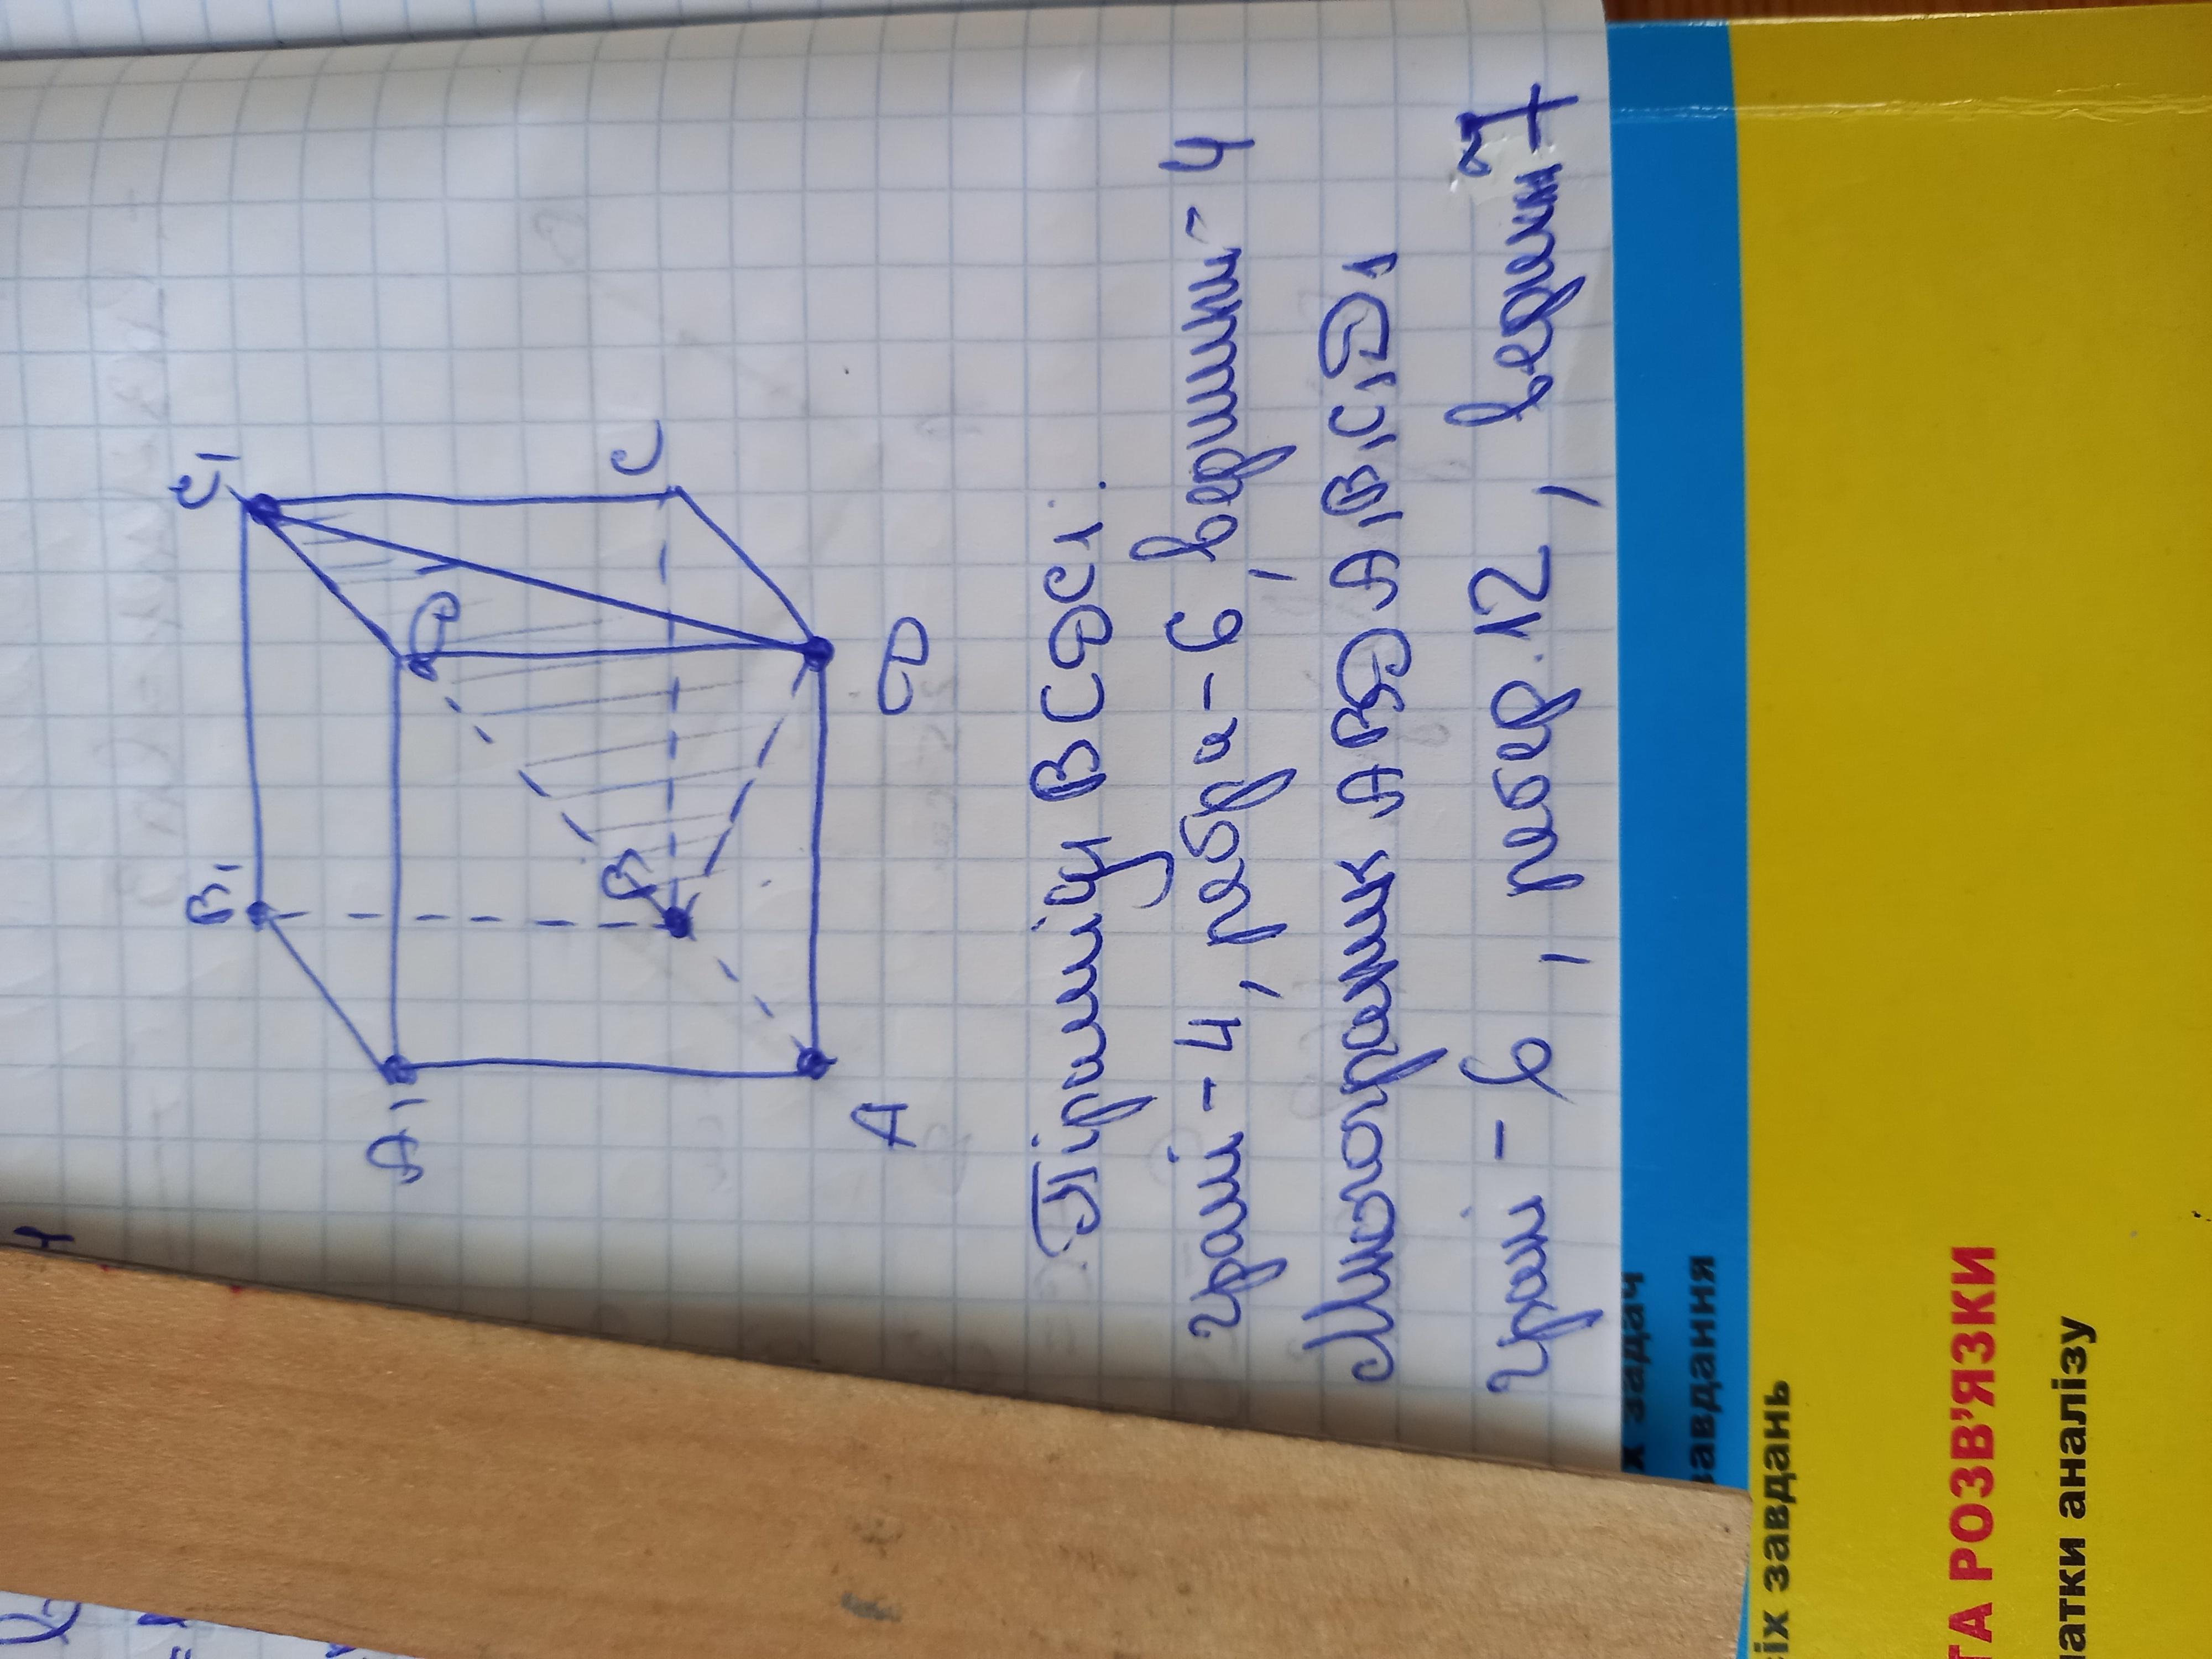 B₁
C₁
A₁
D
B
C
A
D
Піраміду BCDC₁.
грані - 4, ребра - 6, вершини - 4
Многограник ABDA₁B₁C₁D₁
гран - 6, ребер. 12, вершин 7
х задач
завдання
сіх завдань
ТА РОЗВ'ЯЗКИ
чатки аналізу